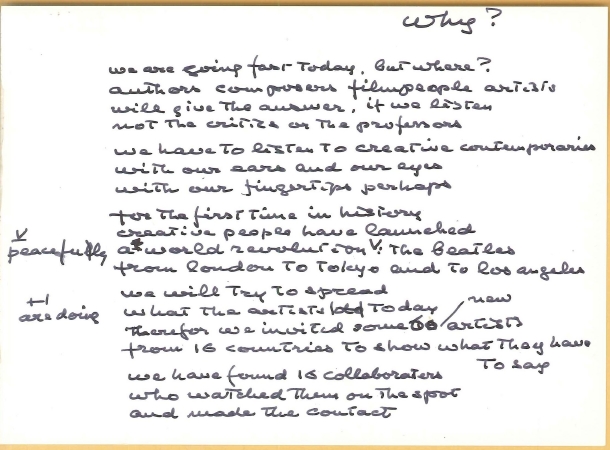 Why?
we are going fast today, but where?
authors composers filmpeople artists
will give the answer, if we listen
not the critics or the professors
we have to listen to creative contemporaries
with our ears and our eyes
with our fingertips perhaps
for the first time in history
creative people have launched
peacefully
a world revolution V: the Beatles
from london to Tokyo and to los angeles
we will try to spread
new
what the artists today
are doing
therefor we invited some artists
from 16 countries to show what they have
to say
we have found 16 collaboraters
who watched them on the spot
and made the contact